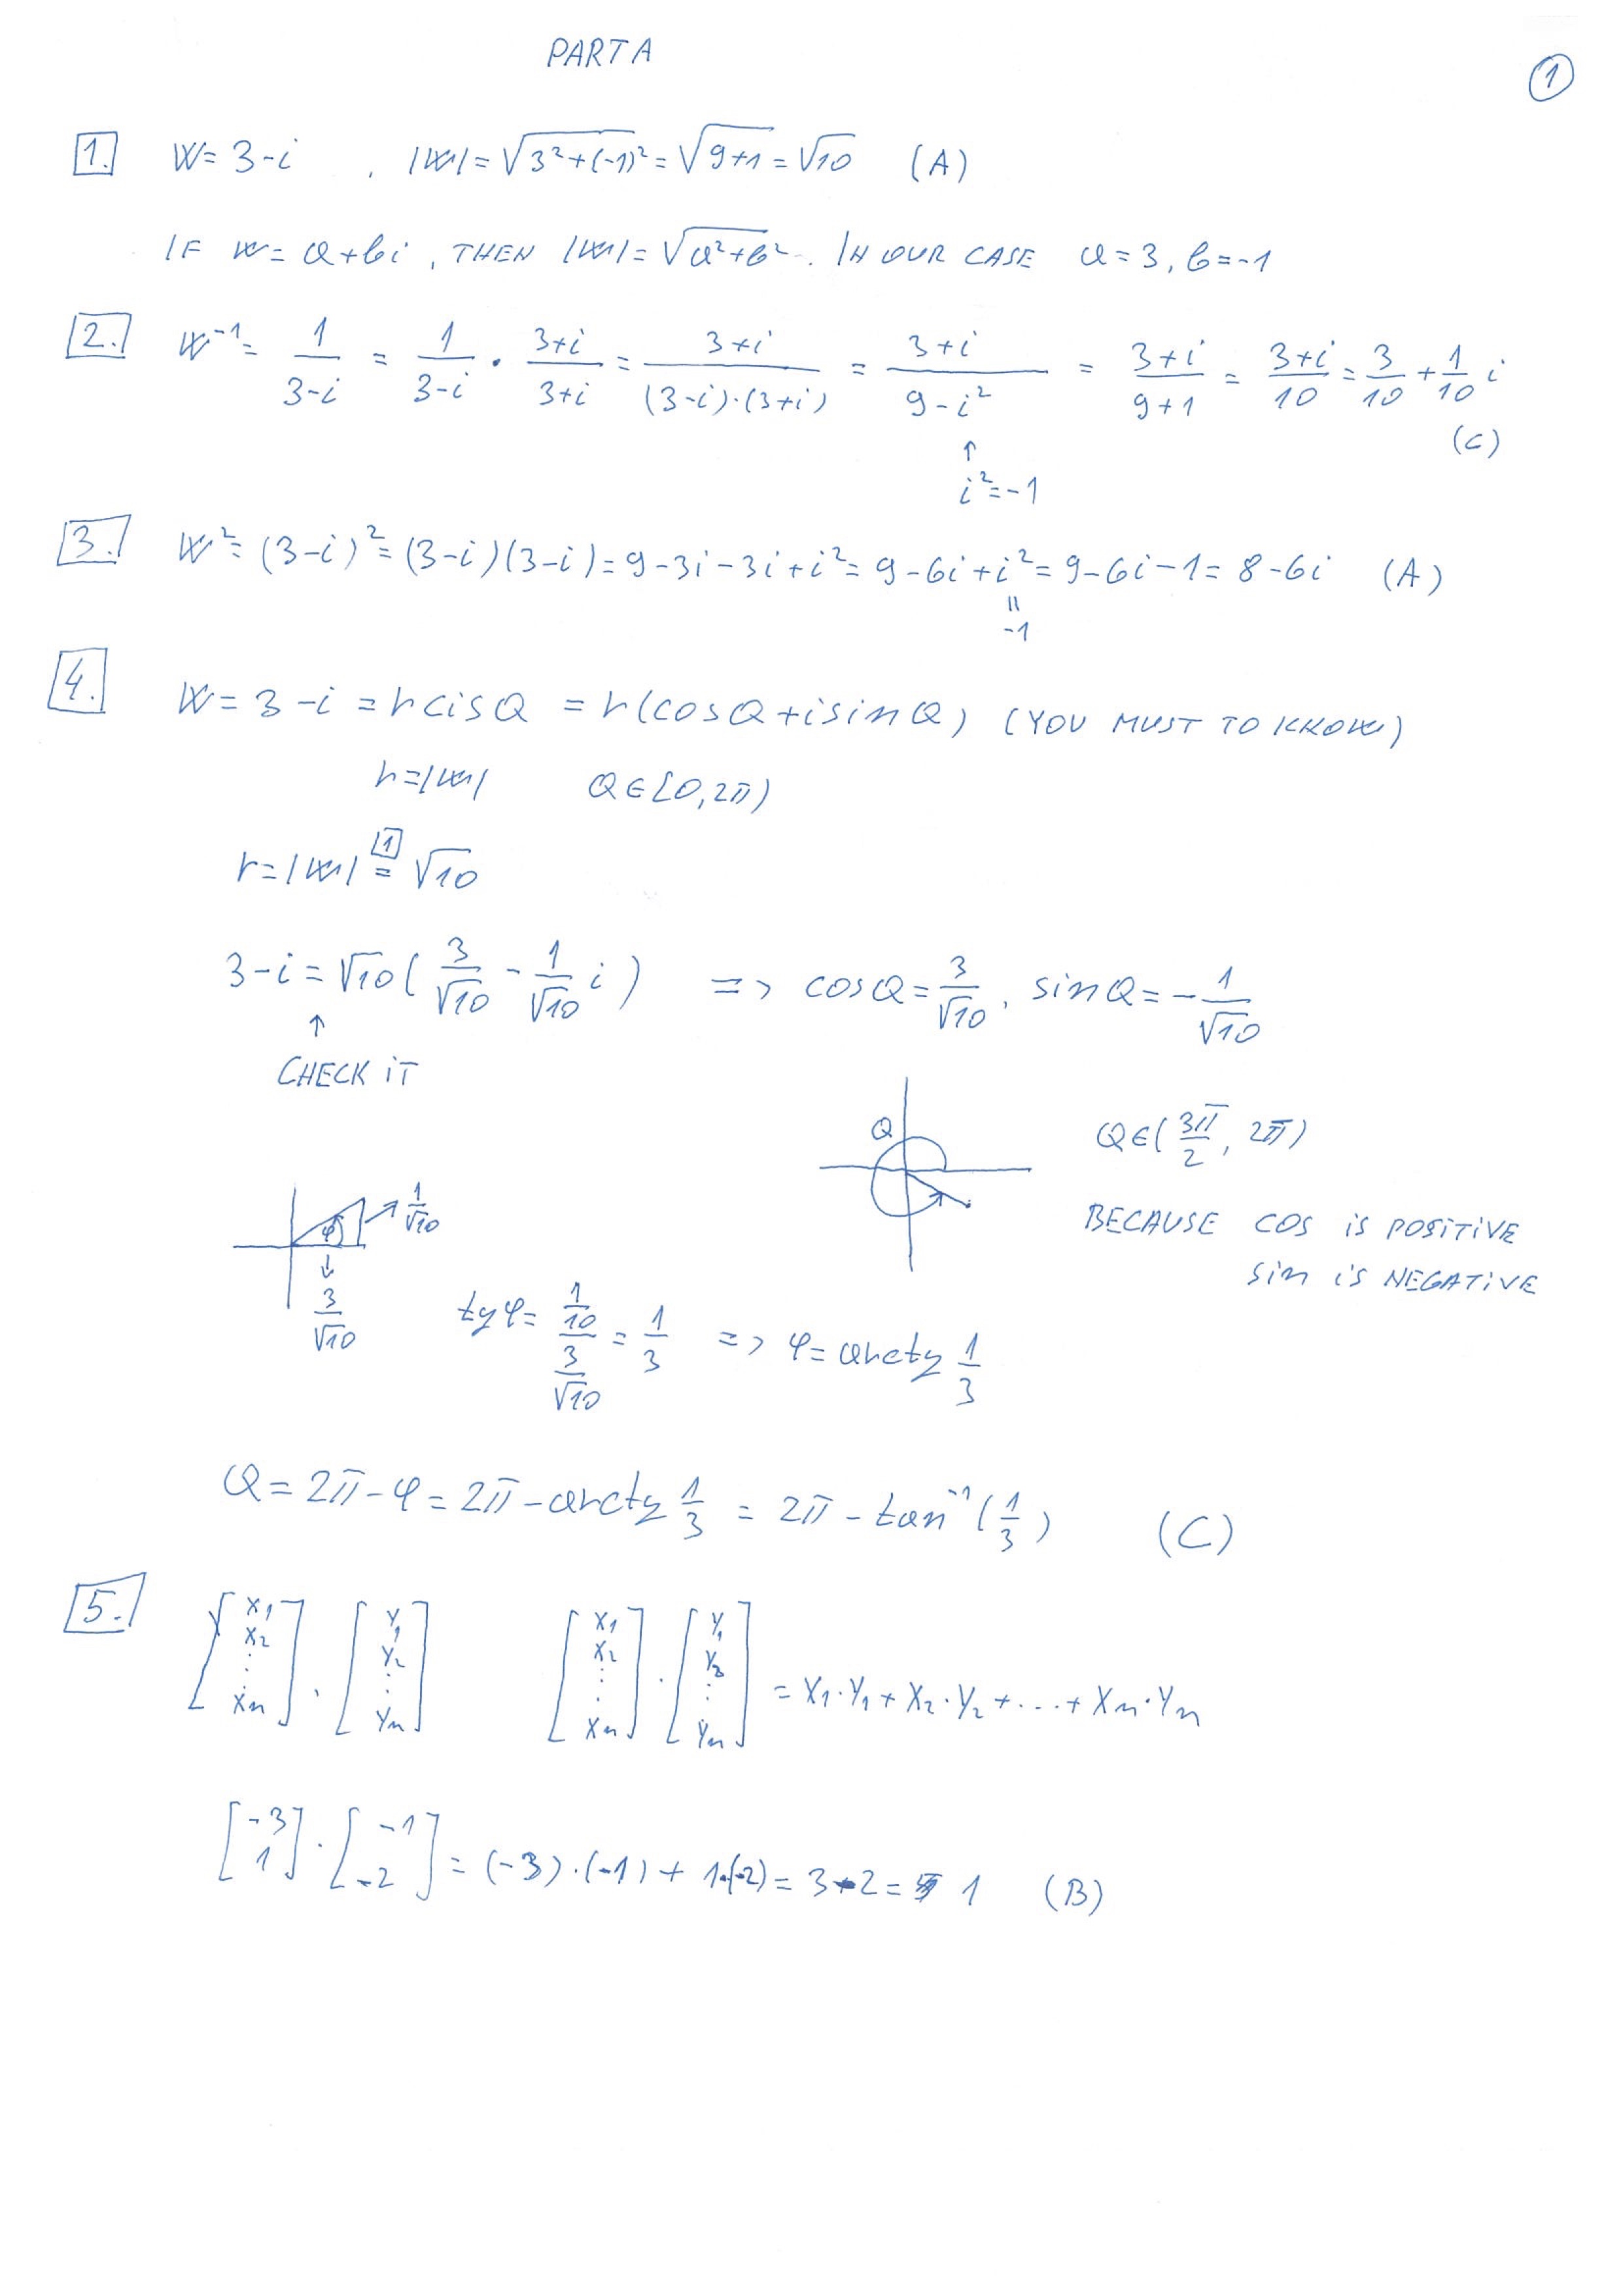 PART A
1
1. W = 3-i , |W| = √(3²+(-1)²) = √(9+1) = √10 (A)
IF W = a+bi, THEN |W| = √(a²+b²). IN OUR CASE a=3, b=-1
2. W⁻¹ = 1/(3-i) = 1/(3-i) · (3+i)/(3+i) = (3+i)/((3-i)·(3+i)) = (3+i)/(9-i²) = (3+i)/(9+1) = (3+i)/10 = 3/10 + 1/10 i
(C)
↑
i²=-1
3. W² = (3-i)² = (3-i)(3-i) = 9-3i-3i+i² = 9-6i+i² = 9-6i-1 = 8-6i (A)
||
-1
4. W = 3-i = r cis Q = r(cosQ+isinQ) (YOU MUST TO KNOW)
r=|W| Q∈[0,2π)
r=|W| =[1] √10
3-i = √10(3/√10 - 1/√10 i) => cosQ = 3/√10, sinQ = -1/√10
↑
CHECK iT
Q Q∈(3π/2, 2π)
φ 1/√10 BECAUSE COS iS POSiTiVE
sin iS NEGATiVE
3/√10
tgφ = (1/10)/(3/√10) = 1/3 => φ = arctg 1/3
Q = 2π-φ = 2π-arctg 1/3 = 2π - tan⁻¹(1/3) (C)
5. [x1 x2 ⋮ xn] · [y1 y2 ⋮ yn] [x1 x2 ⋮ xn] · [y1 y2 ⋮ yn] = x1·y1 + x2·y2 + ... + xn·yn
[-3 1] · [-1 -2] = (-3)·(-1) + 1·(-2) = 3-2 = 1 (B)